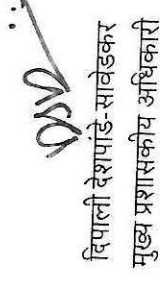 दिपाली देशपांडे-सावेडकर
मुख्य प्रशासकीय अधिकारी